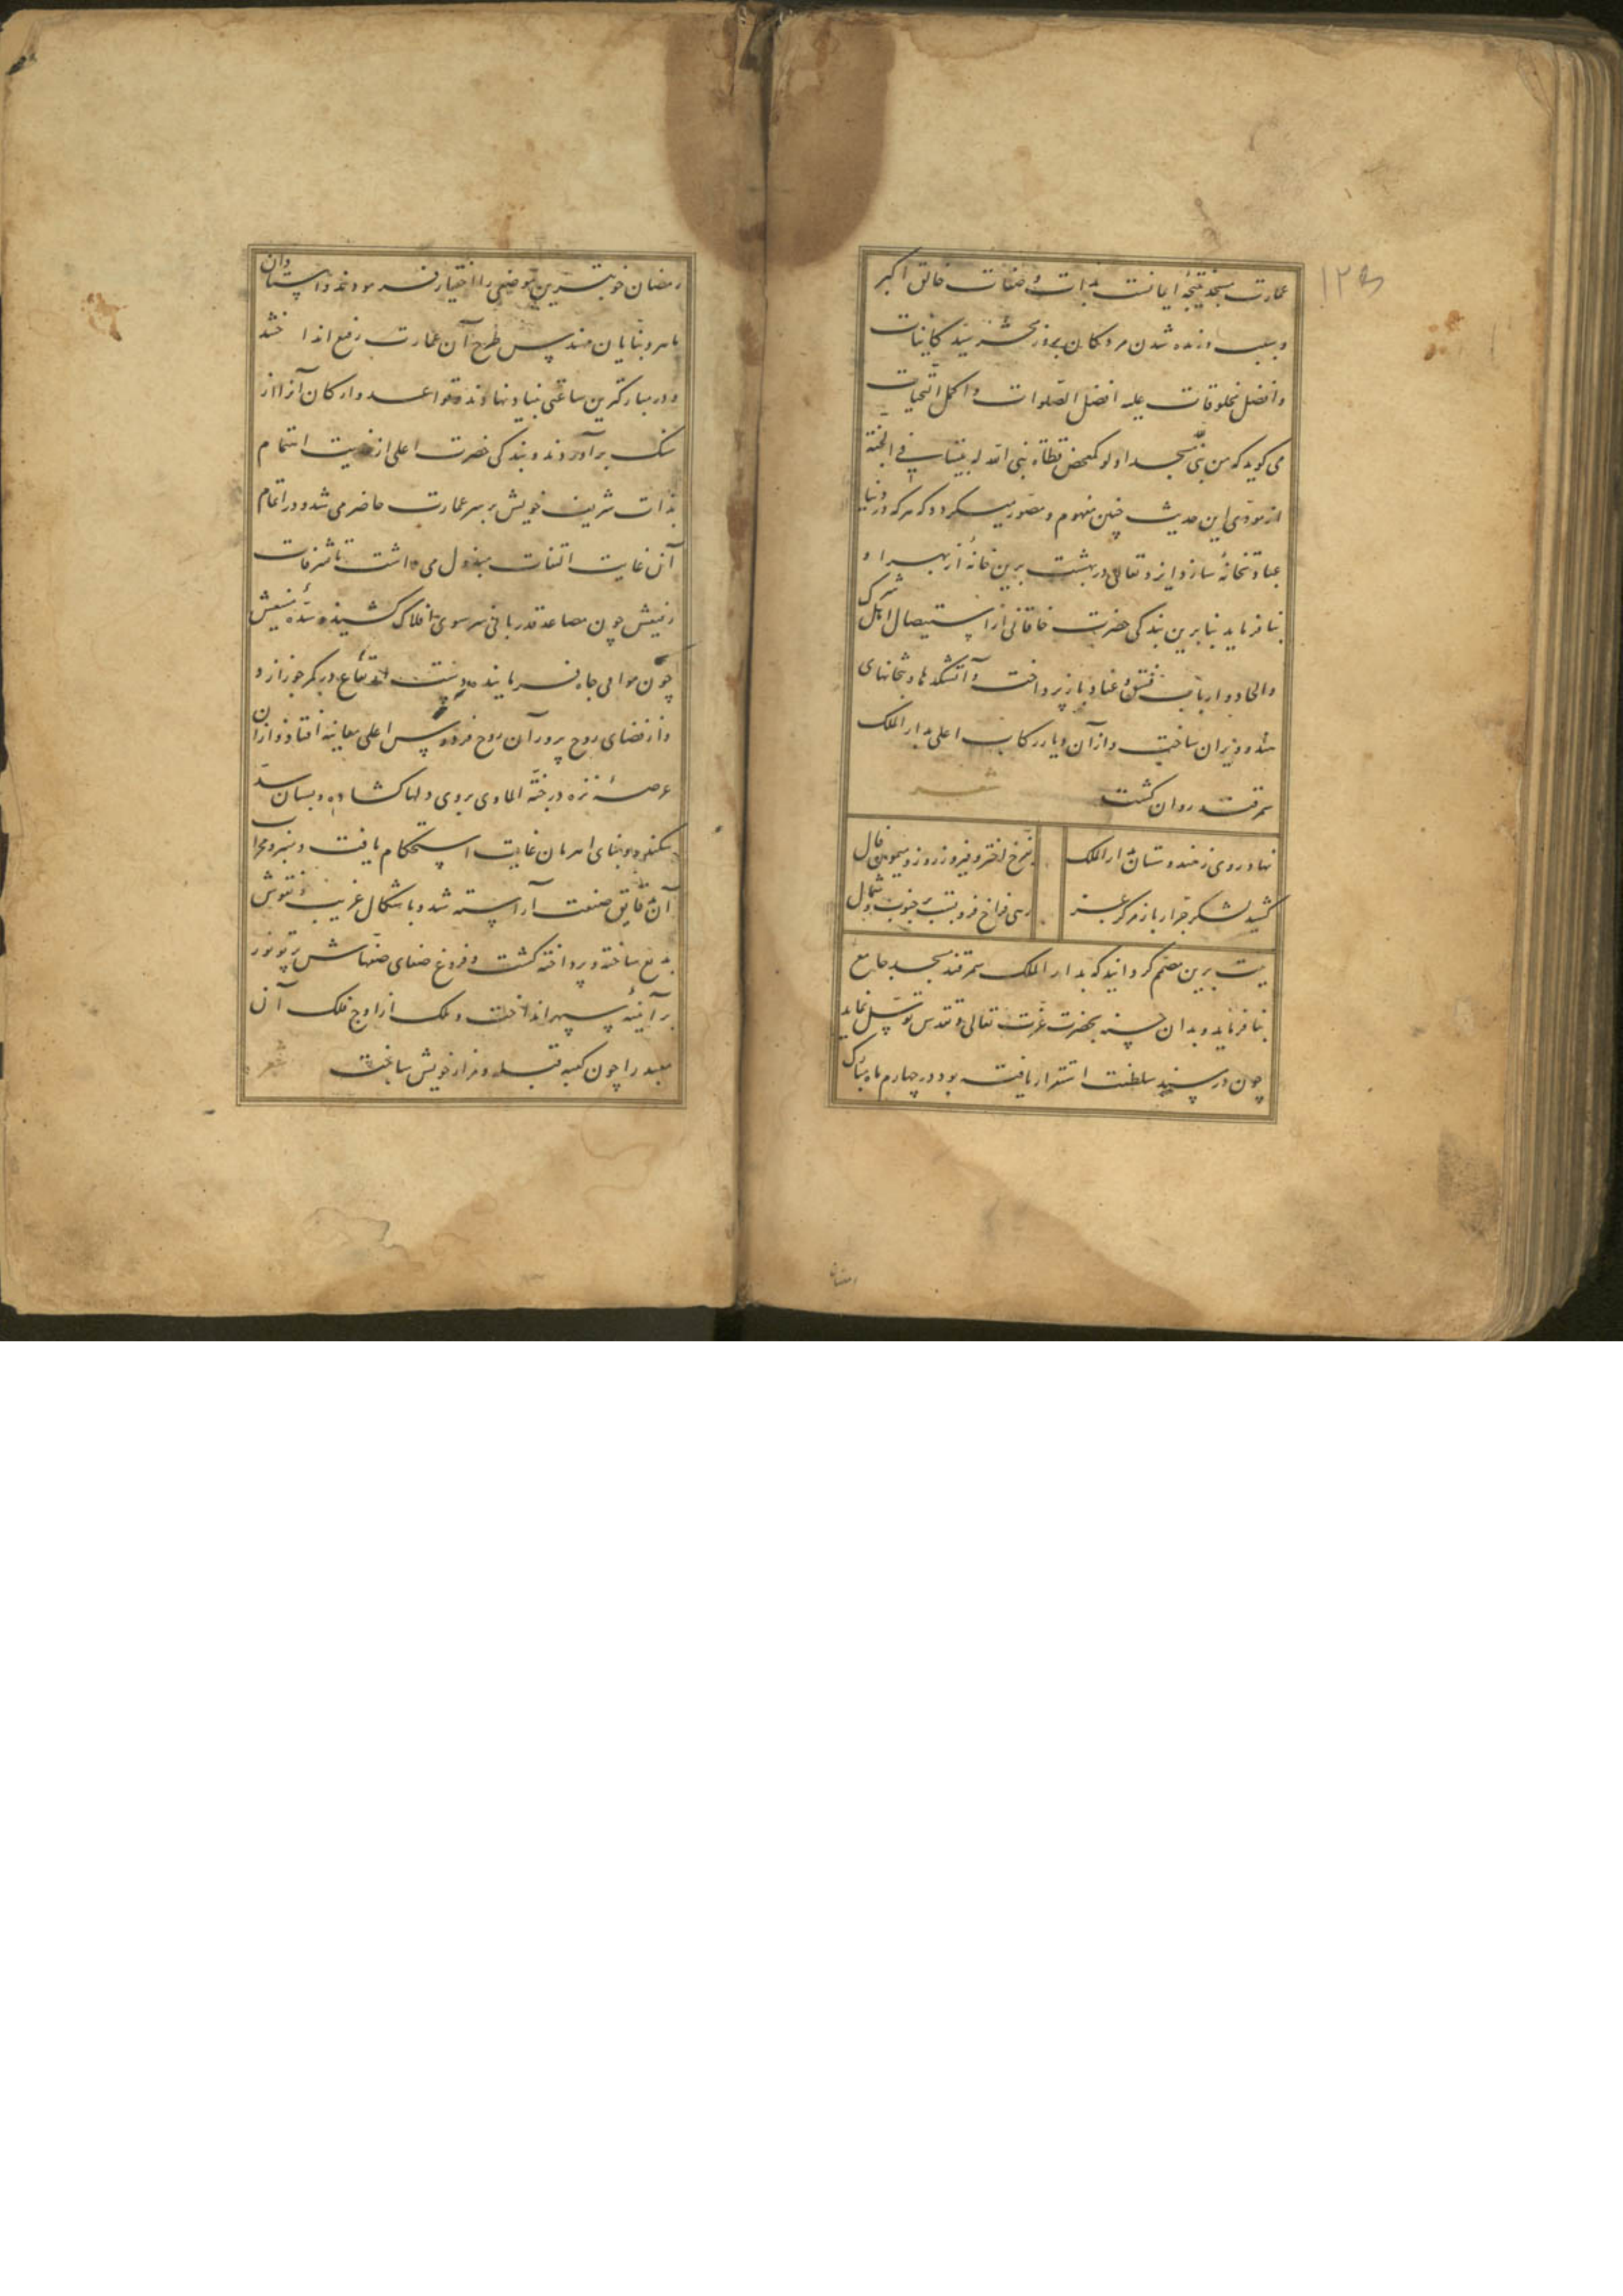 ۱۲۵
عمارت مسجد نتیجهٔ ایمانست بذات و صفات خالق اکبر
و سبب زنده شدن مردگان بروز محشر سید کاینات
و افضل مخلوقات علیه افضل الصلوات و اکمل التحیات
می گوید که من بنی مسجدا و لو کمفحص قطاة بنی الله له بیتا فی الجنة
از مودی این حدیث چنین مفهوم و مصور میگردد که هر که در دنیا
عبادتخانهٔ سازد ایزد تعالی در بهشت برین خانهٔ از بهر او
بنا فرماید بنا برین بندگی حضرت خاقانی از استیصال اهل شرک
و الحاد و ارباب فسق و عناد باز پرداخت و آتشکدها و بتخانهای
هند ویران ساخت و از آن دیار رکاب اعلی بدار الملک
سمرقند روان گشت شعر
نهاد روی ز هندوستان بدار الملک بفرخ اختر و فیروز روز و میمون فال
کشید لشکر جرار باز مرکز عز رهی فراخ فروبست بر جنوب و شمال
نیت برین مصمم گردانید که بدار الملک سمرقند مسجد جامع
بنا فرماید و بدان حسنه بحضرت عزت تعالی و تقدس توسل نماید
چون در سنه سلطنت استقرار یافته بود در چهارم ماه مبارک
رمضان
رمضان خوبترین موضعی را اختیار فرمودند و استادان
ماهر و بنایان مهندس طرح آن عمارت رفیع انداختند
و در مبارکترین ساعتی بنیاد نهادند و قواعد و ارکان آنرا از
سنگ برآوردند و بندگی حضرت اعلی از اهتمام
بذات شریف خویش بر سر عمارت حاضر می شد و در اتمام
آن غایت التفات مبذول می داشت تا شرفات
رفیعش چون مصاعد قدر بانی سر سوی افلاک کشیده شد
چون جاه فرماینده دست ارتفاع در کمر جوزا زد
و از فضای روح پرور آن روح فردوس اعلی معاینه افتاد و از آن
عرصهٔ نزه در جنة الماوی بروی دلها گشاده و بسان سد
سکندر و بنای اهرمان غایت استحکام یافت و منبر و محراب
آن بدقایق صنعت آراسته شد و باشکال غریب و نقوش
بدیع ساخته و پرداخته گشت و فروغ صفای صفهاش پرتو نور
بر آینهٔ سپهر انداخت و ملک از اوج فلک آن
معبد را چون کعبه قبله و مزار خویش ساخت شعر